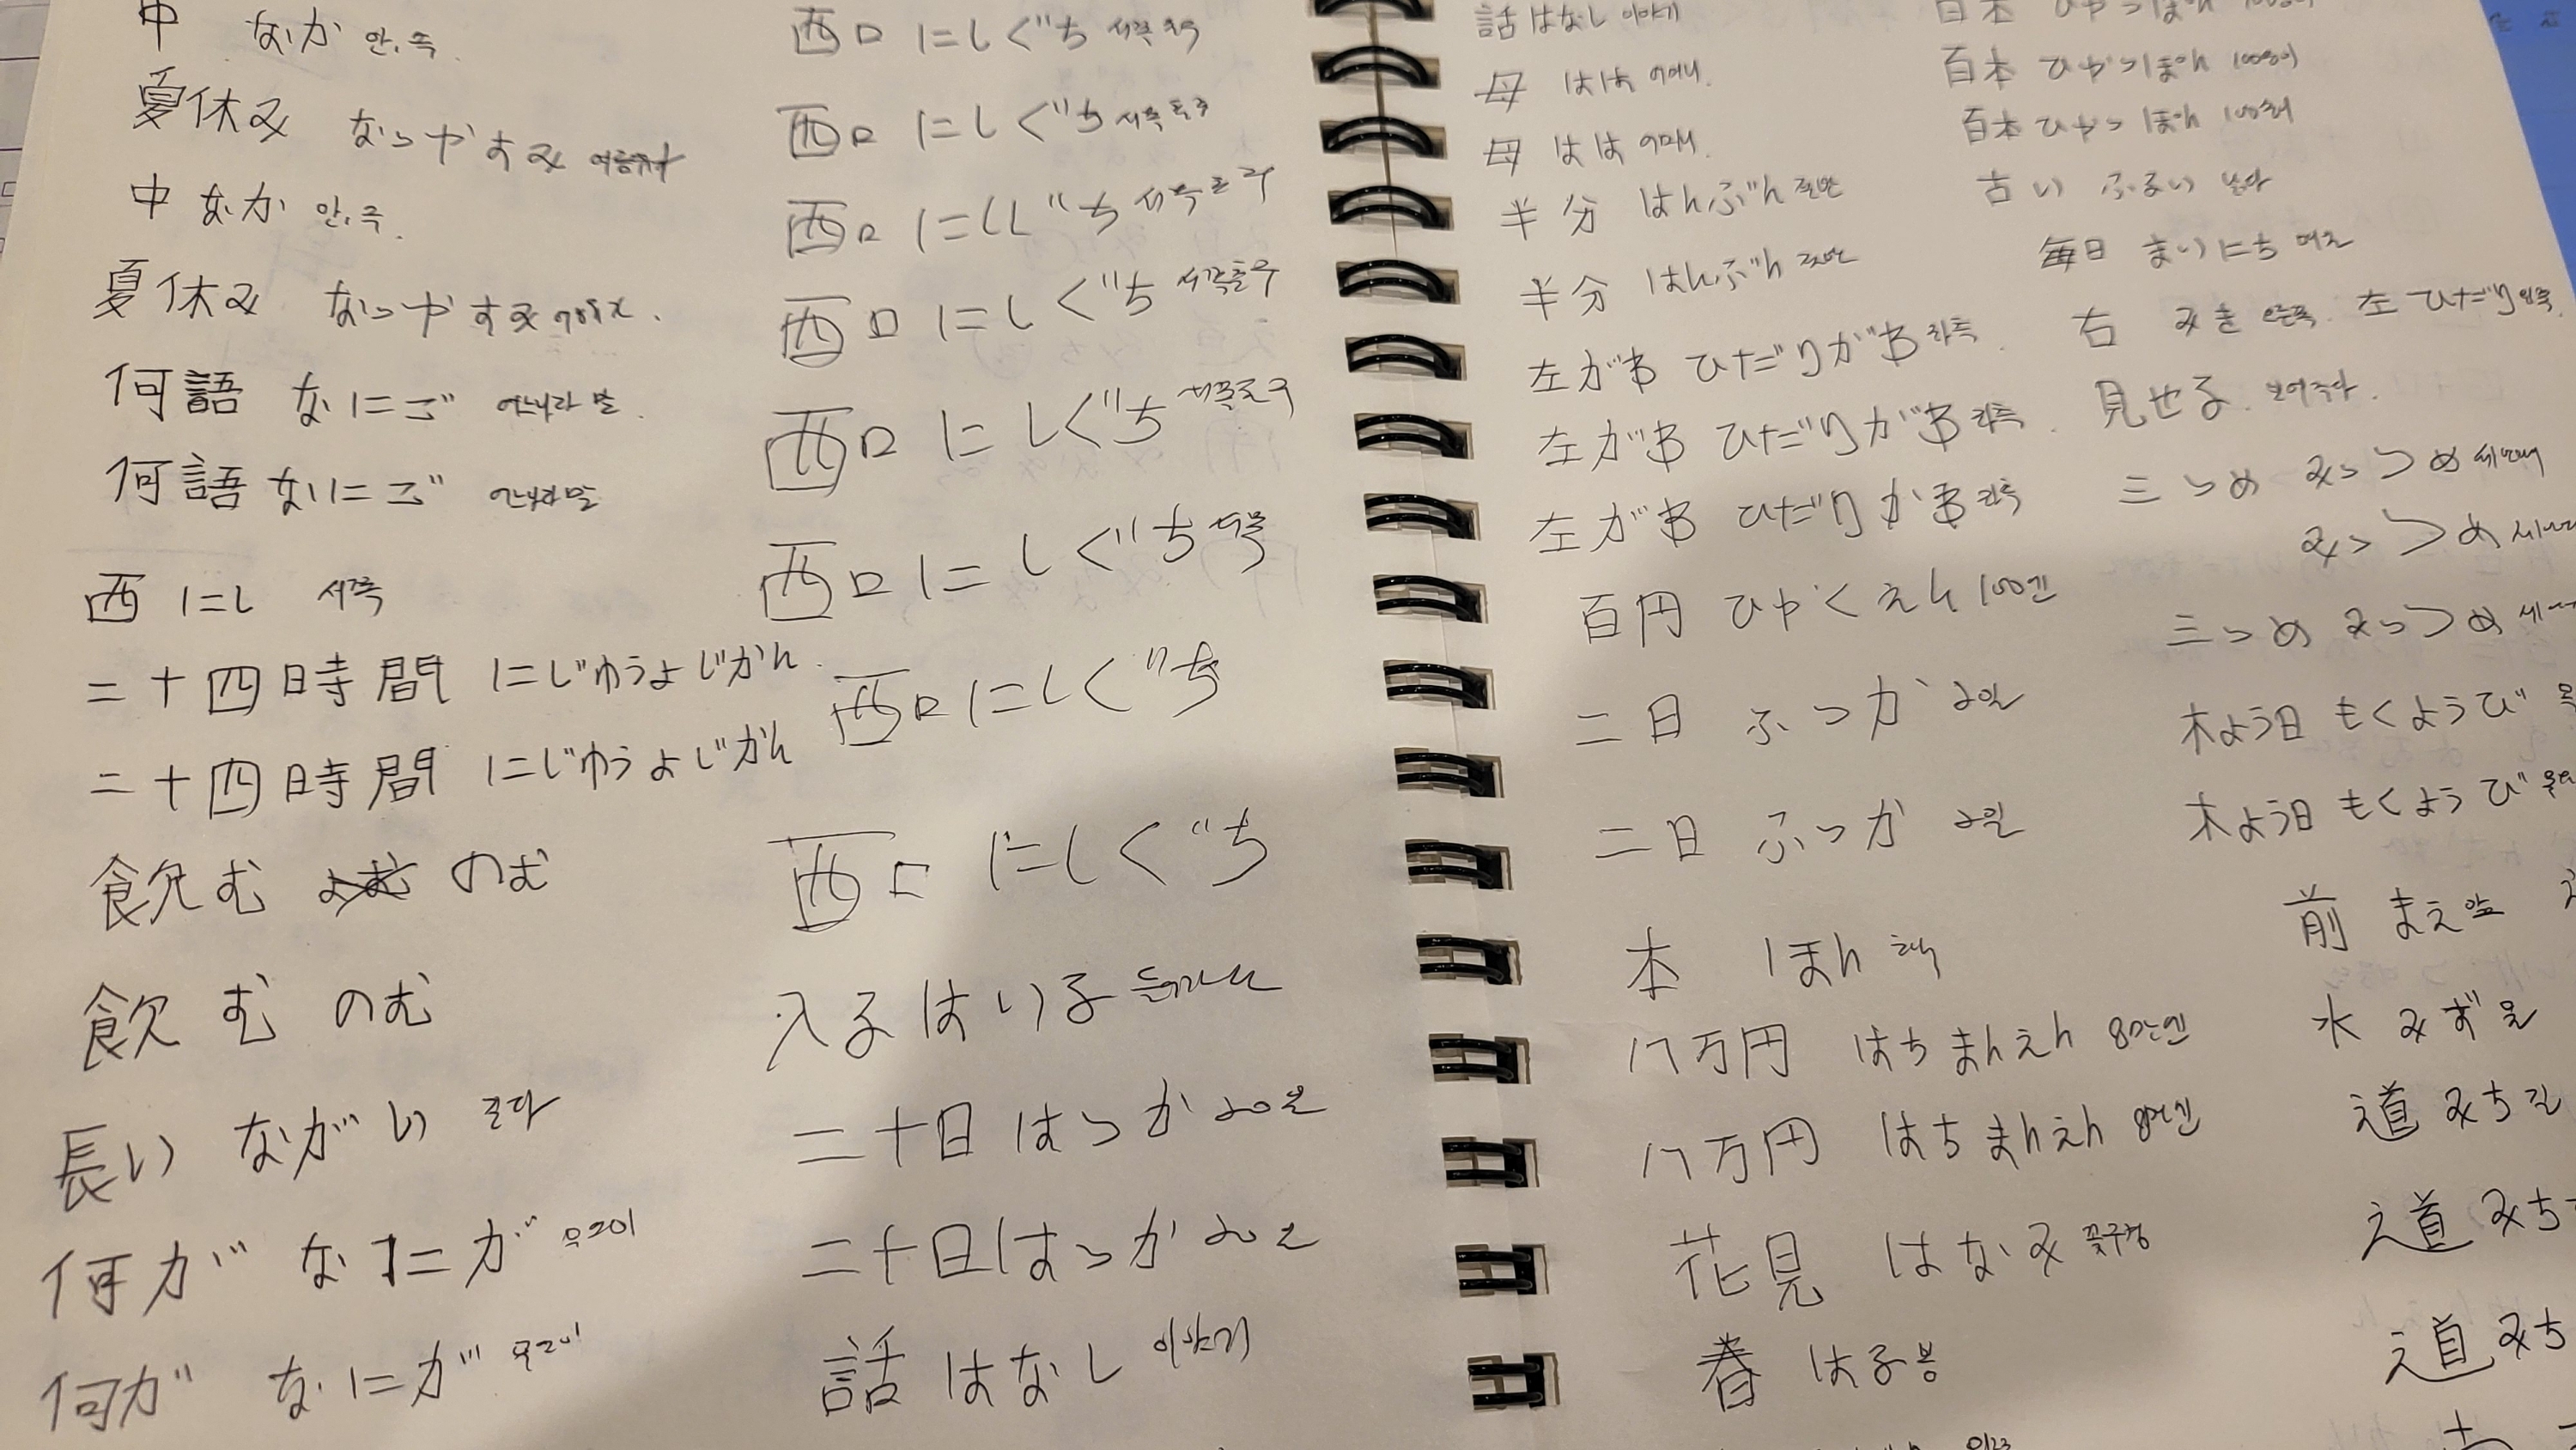 中 なか 안, 속.
夏休み なつやすみ
中 なか 안, 속.
夏休み なつやすみ
何語 なにご 어느나라 말.
何語 なにご 어느나라말
西 にし 서쪽
二十四時間 にじゅうよじかん
二十四時間 にじゅうよじかん
飲む のむ
飲む のむ
長い ながい 길다
何が なにが 무엇이
何が なにが 무엇이
西口 にしぐち
西口 にしぐち 서쪽출구
西口 にしぐち 서쪽출구
西口 にしぐち 서쪽출구
西口 にしぐち 서쪽출구
西口 にしぐち
西口 にしぐち
西口 にしぐち
入る はいる
二十日 はつか 20일
二十日 はつか 20일
話 はなし 이야기
話 はなし 이야기
母 はは 어머니.
母 はは
半分 はんぶん 절반
半分 はんぶん 절반
左がわ ひだりがわ 좌측.
左がわ ひだりがわ 좌측.
左がわ ひだりがわ 좌측
百円 ひゃくえん 100엔
二日 ふつか 2일
二日 ふつか 2일
本 ほん 책
八万円 はちまんえん 8만엔
八万円 はちまんえん 8만엔
花見 はなみ 꽃구경
春 はる 봄
百本 ひゃっぽん
百本 ひゃっぽん
百本 ひゃっぽん
古い ふるい 낡다
毎日 まいにち 매일
右 みぎ 오른쪽. 左 ひだり 왼쪽.
見せる. 보여주다.
三つめ みっつめ 세번째
みっつめ
三つめ みっつめ
木よう日 もくようび
木よう日 もくようび
前 まえ 앞
水 みず 물
道 みち 길
道 みち
道 みち